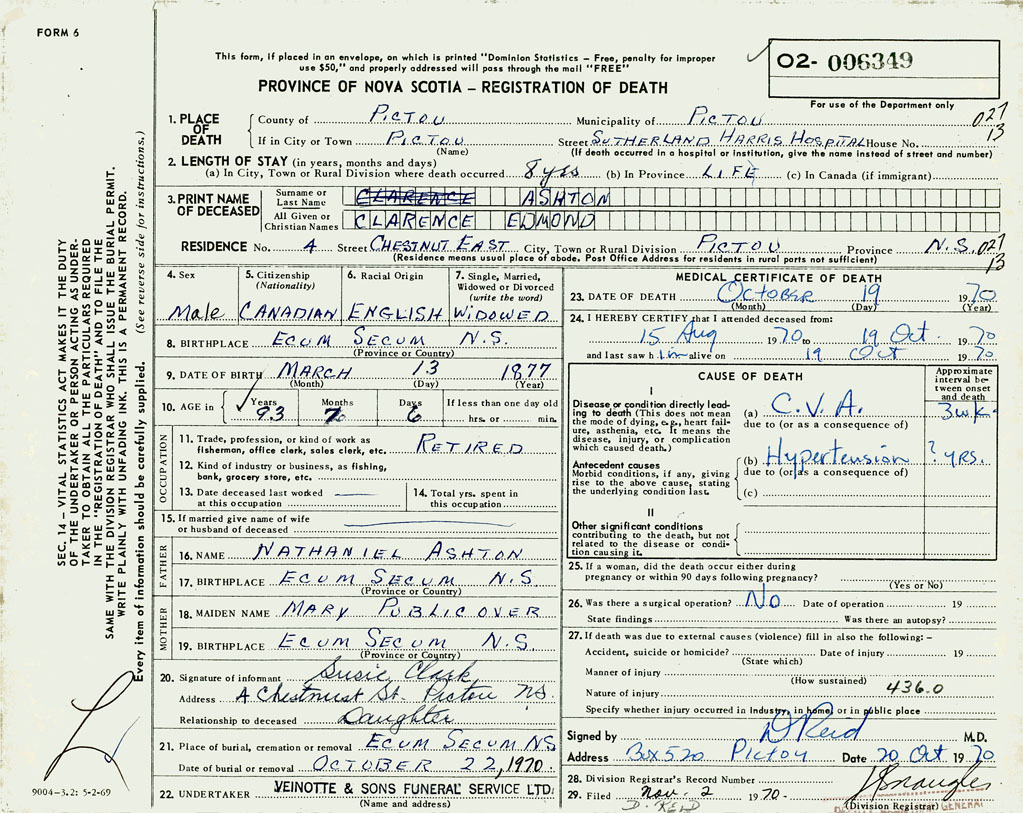 FORM 6
This form, if placed in an envelope, on which is printed "Dominion Statistics – Free, penalty for improper
use $50," and properly addressed will pass through the mail "FREE"
02- 006349
PROVINCE OF NOVA SCOTIA – REGISTRATION OF DEATH
For use of the Department only
1. PLACE OF DEATH County of PICTOU Municipality of PICTOU 027
If in City or Town PICTOU Street SUTHERLAND HARRIS HOSPITAL House No. 13
(Name) (If death occurred in a hospital or institution, give the name instead of street and number)
2. LENGTH OF STAY (in years, months and days)
(a) In City, Town or Rural Division where death occurred 8 yrs (b) In Province LIFE (c) In Canada (if immigrant)
3. PRINT NAME OF DECEASED Surname or Last Name CLARENCE ASHTON
All Given or Christian Names CLARENCE EDMOND
RESIDENCE No. 4 Street CHESTNUT EAST City, Town or Rural Division PICTOU Province N.S. 027
(Residence means usual place of abode. Post Office Address for residents in rural parts not sufficient) 13
4. Sex
Male
5. Citizenship
(Nationality)
CANADIAN
6. Racial Origin
ENGLISH
7. Single, Married,
Widowed or Divorced
(write the word)
WIDOWED
8. BIRTHPLACE ECUM SECUM N.S.
(Province or Country)
9. DATE OF BIRTH MARCH 13 1877
(Month) (Day) (Year)
10. AGE in Years Months Days If less than one day old
93 7 6 hrs. or min.
OCCUPATION
11. Trade, profession, or kind of work as
fisherman, office clerk, sales clerk, etc. RETIRED
12. Kind of industry or business, as fishing,
bank, grocery store, etc.
13. Date deceased last worked
at this occupation
14. Total yrs. spent in
this occupation
15. If married give name of wife
or husband of deceased
FATHER
16. NAME NATHANIEL ASHTON
17. BIRTHPLACE ECUM SECUM N.S.
(Province or Country)
MOTHER
18. MAIDEN NAME MARY PUBLICOVER
19. BIRTHPLACE ECUM SECUM N.S.
(Province or Country)
20. Signature of informant Susie Clark
Address 4 Chestnust St. Pictou NS.
Relationship to deceased Daughter
21. Place of burial, cremation or removal ECUM SECUM N.S.
Date of burial or removal OCTOBER 22, 1970.
22. UNDERTAKER VEINOTTE & SONS FUNERAL SERVICE LTD.
(Name and address)
MEDICAL CERTIFICATE OF DEATH
23. DATE OF DEATH OCTOBER 19 1970
(Month) (Day) (Year)
24. I HEREBY CERTIFY that I attended deceased from:
15 Aug 1970 to 19 Oct 1970
and last saw him alive on 19 Oct 1970
CAUSE OF DEATH
Approximate
interval be-
tween onset
and death
I
Disease or condition directly lead-
ing to death (This does not mean
the mode of dying, e.g., heart fail-
ure, asthenia, etc. It means the
disease, injury, or complication
which caused death.)
(a) C.V.A. 3 wk.
due to (or as a consequence of)
Antecedent causes
Morbid conditions, if any, giving
rise to the above cause, stating
the underlying condition last.
(b) Hypertension ? YRS.
due to (or as a consequence of)
(c)
II
Other significant conditions
contributing to the death, but not
related to the disease or condi-
tion causing it.
25. If a woman, did the death occur either during
pregnancy or within 90 days following pregnancy?
(Yes or No)
26. Was there a surgical operation? No Date of operation 19
State findings Was there an autopsy?
27. If death was due to external causes (violence) fill in also the following: –
Accident, suicide or homicide? Date of injury 19
(State which)
Manner of injury
(How sustained)
Nature of injury 436.0
Specify whether injury occurred in industry, in home, or in public place
Signed by D Reid M.D.
Address Box 520 Pictou Date 20 Oct 1970
28. Division Registrar's Record Number
29. Filed Nov. 2 1970-
D. REID (Division Registrar)
GENERAL
SEC. 14 – VITAL STATISTICS ACT MAKES IT THE DUTY
OF THE UNDERTAKER OR PERSON ACTING AS UNDER-
TAKER TO OBTAIN ALL THE PARTICULARS REQUIRED
IN THE "REGISTRATION OF DEATH" AND TO FILE THE
SAME WITH THE DIVISION REGISTRAR WHO SHALL ISSUE THE BURIAL PERMIT.
WRITE PLAINLY WITH UNFADING INK. THIS IS A PERMANENT RECORD.
Every item of information should be carefully supplied. (See reverse side for instructions.)
9004-3.2: 5-2-69